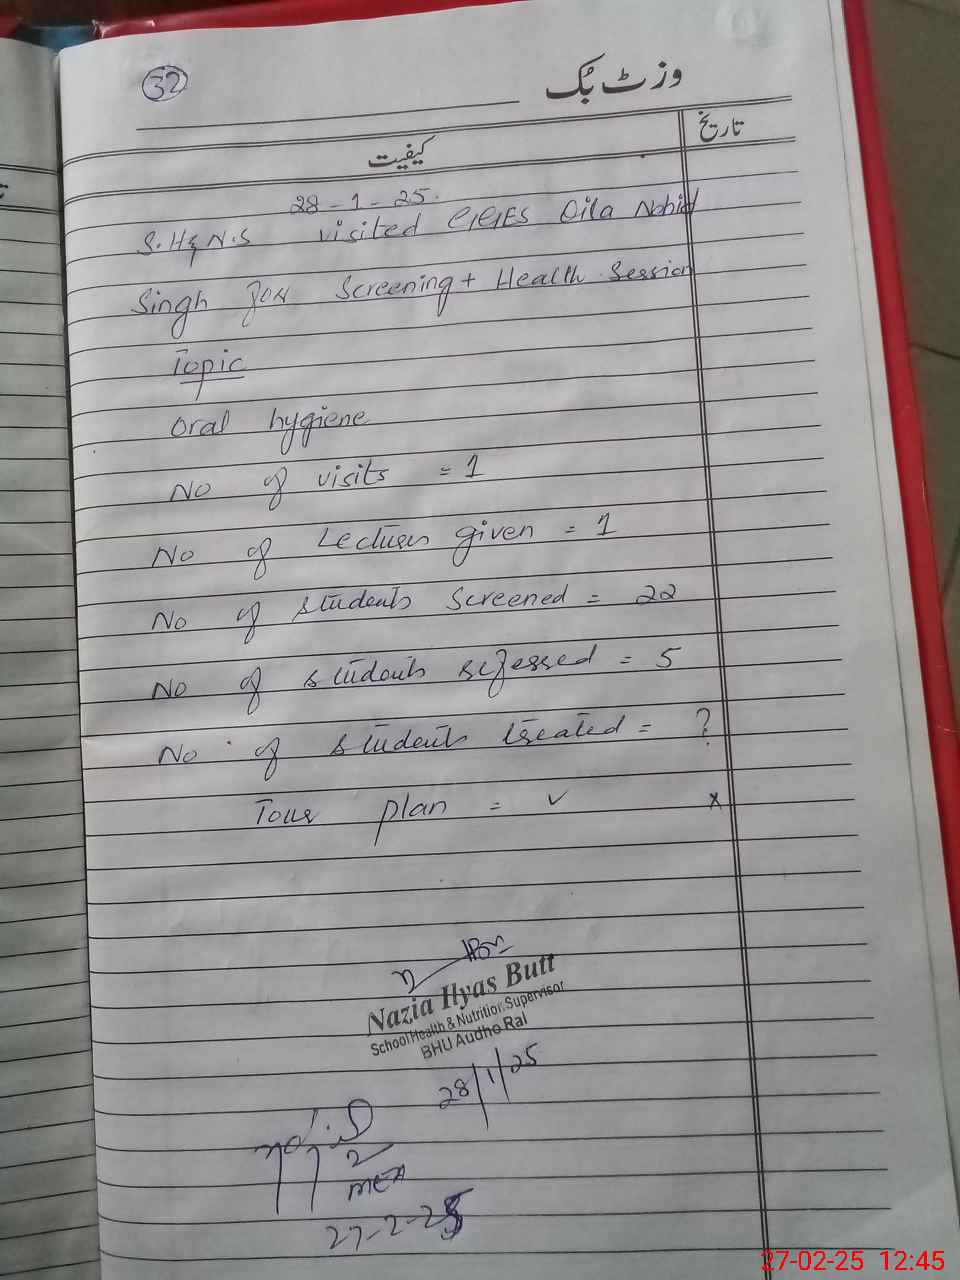 32
وزٹ بُک
تاریخ
کیفیت
28-1-25.
S.H&N.S visited GGES Qila Nabid
Singh for Screening + Health Session
Topic
Oral hygiene
No of visits = 1
No of Lectures given = 1
No of students Screened = 22
No of students refessed = 5
No of students treated = ?
Tour plan = ✓ x
Nazia Ilyas Butt
School Health & Nutrition Supervisor
BHU Audho Rai
28/1/25
MEA
27-2-25
27-02-25 12:45